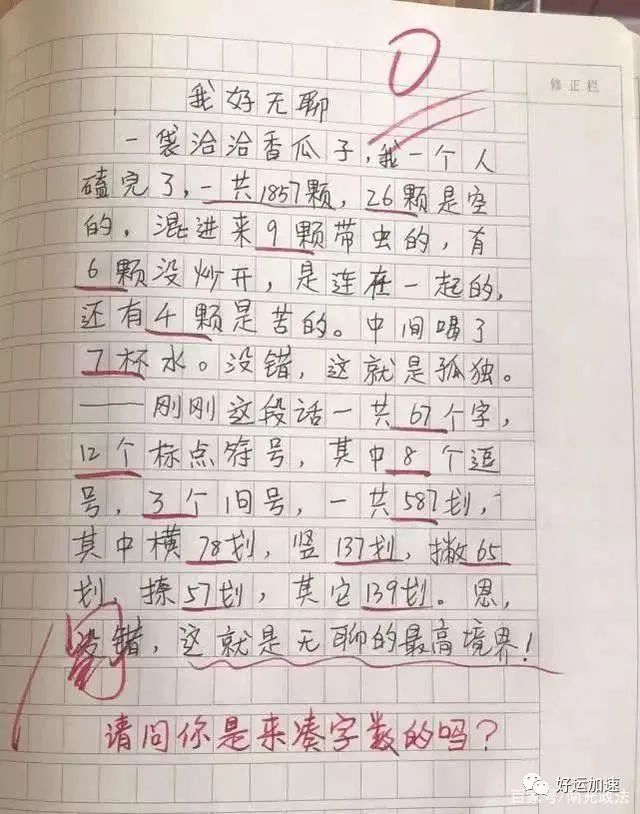 0
修正栏
我好无聊
一袋洽洽香瓜子,我一个人
磕完了,一共1857颗,26颗是空
的,混进来9颗带虫的,有
6颗没炒开,是连在一起的,
还有4颗是苦的。中间喝了
7杯水。没错,这就是孤独。
——刚刚这段话一共67个字,
12个标点符号,其中8个逗
号,3个句号,一共587划,
其中横78划,竖137划,撇65
划,捺57划,其它139划。恩,
没错,这就是无聊的最高境界!
阅
请问你是来凑字数的吗?
好运加速
百家号/南充政法